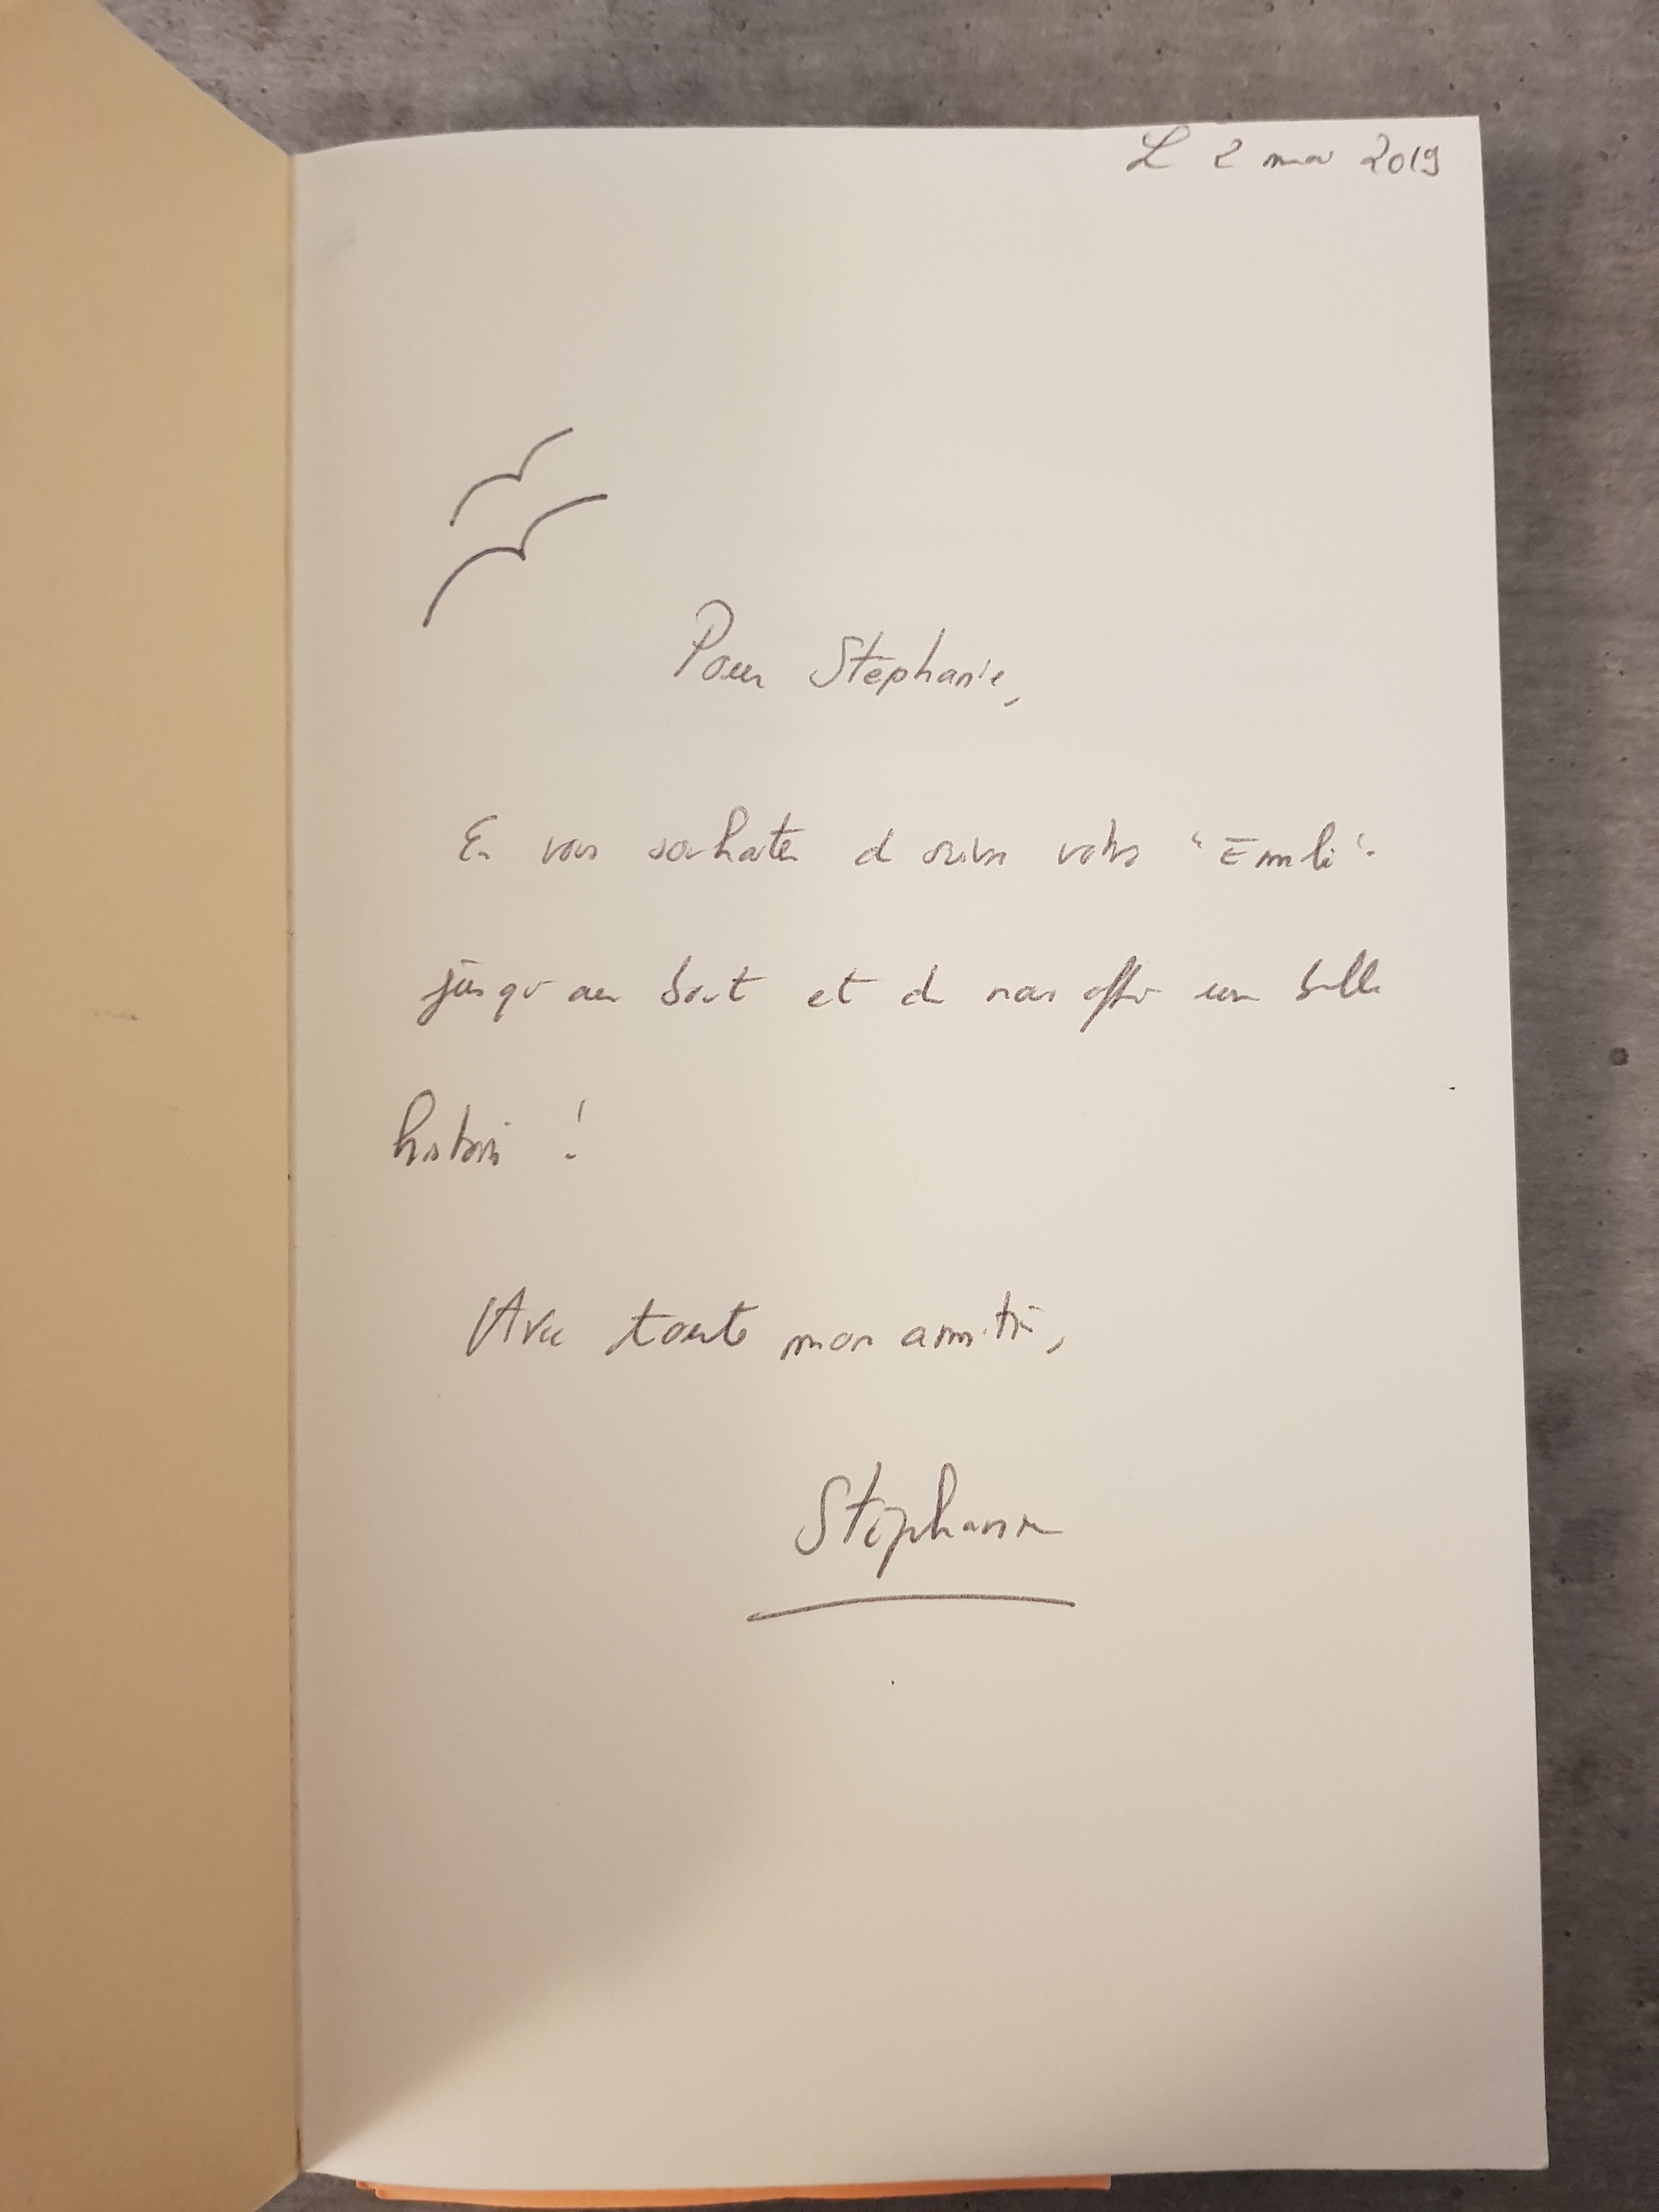 Le 2 mai 2019
Pour Stéphanie,
En vous souhaitant de suivre votre "Emilie"
jusqu'au bout et de nous offrir une belle
histoire !
Avec toute mon amitié,
Stéphanie